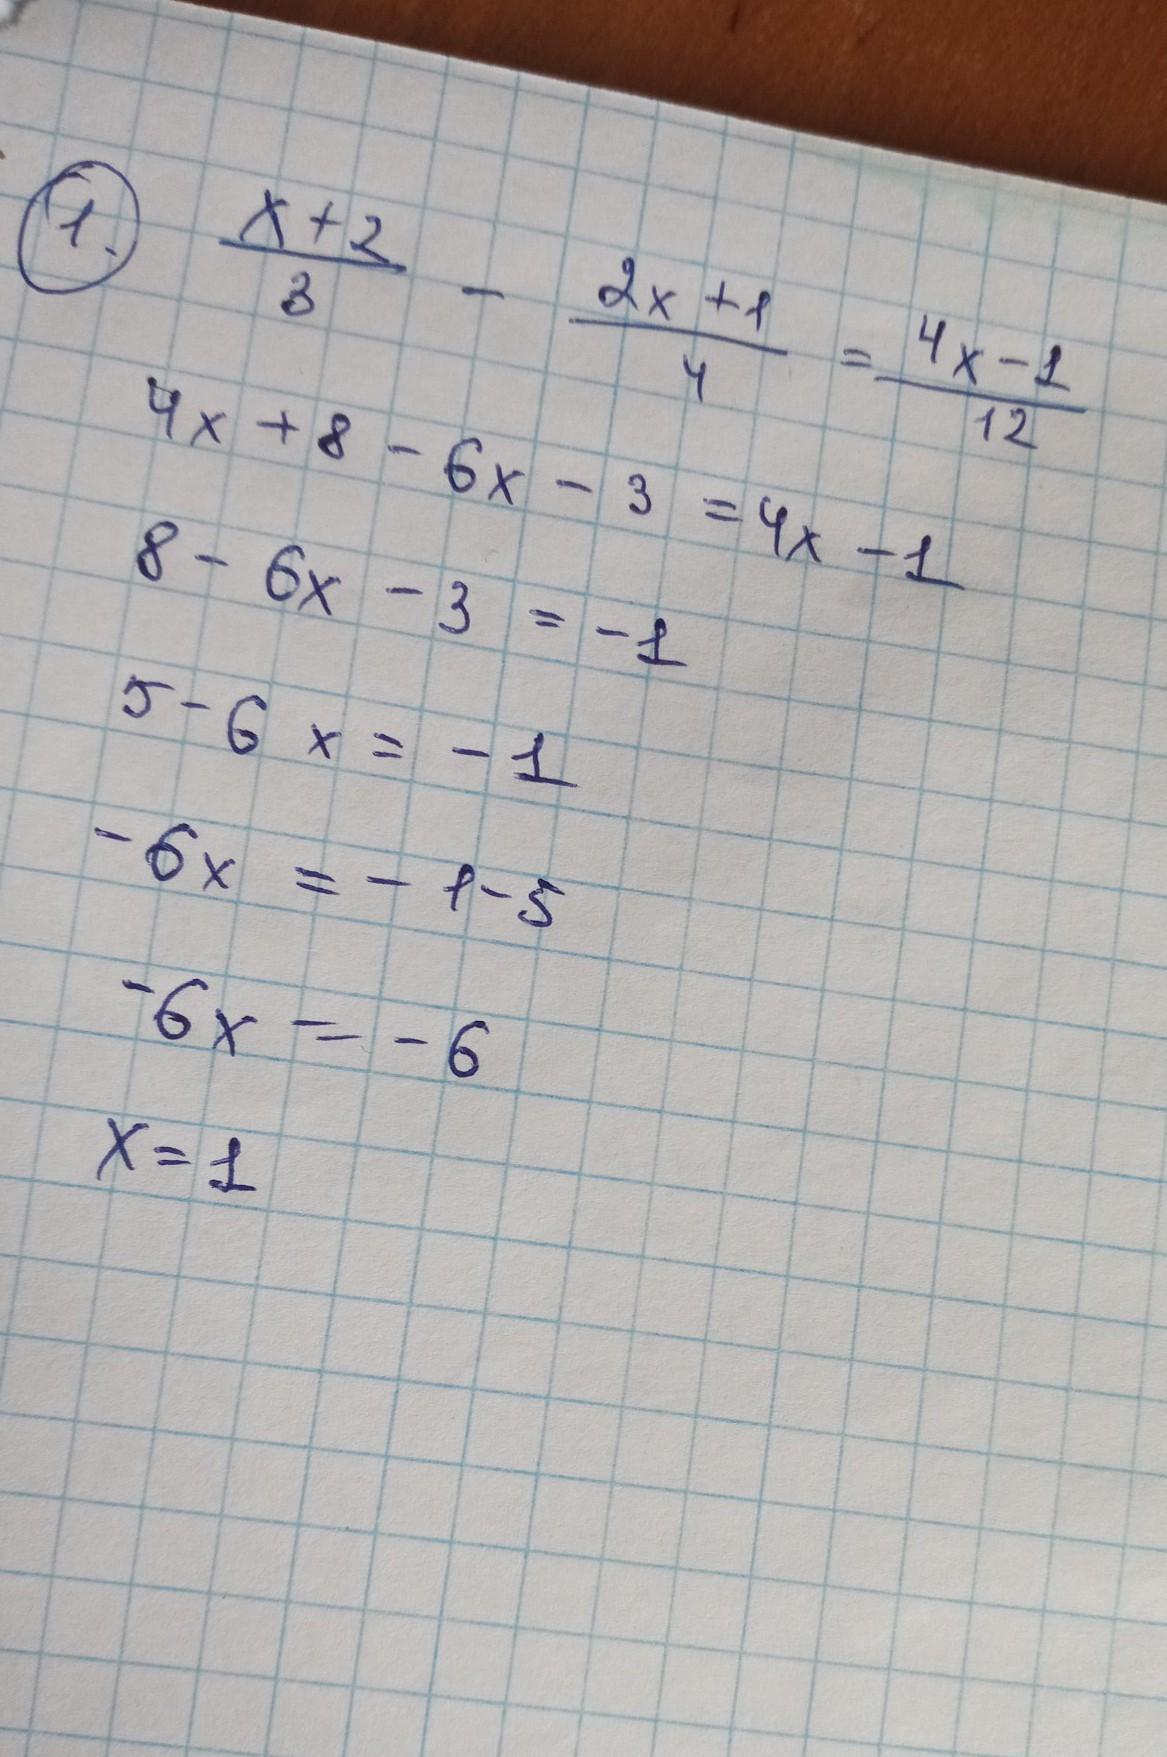 1. (x+2)/3 - (2x+1)/4 = (4x-1)/12
4x+8-6x-3=4x-1
8-6x-3=-1
5-6x=-1
-6x=-1-5
-6x=-6
x=1